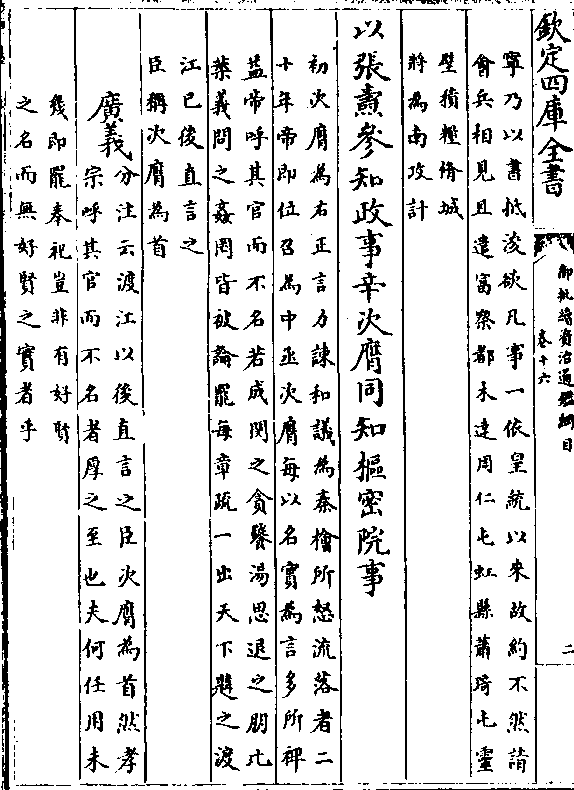 欽定四庫全書
御批續資治通鑑綱目
卷十六
二
寧乃以書抵浚欲凡事一依皇統以來故約不然請
會兵相見且遣富察都木達周仁屯虹縣蕭琦屯靈
壁積糧脩城
將為南攻計
以張燾參知政事辛次膺同知樞密院事
初次膺為右正言力諫和議為秦檜所怒流落者二
十年帝即位召為中丞次膺每以名實為言多所裨
益帝呼其官而不名若成閔之貪饕湯思退之朋比
葉義問之姦罔皆被論罷每章疏一出天下韙之渡
江已後直言之
臣稱次膺為首
廣義
分注云渡江以後直言之臣次膺為首然孝
宗呼其官而不名者厚之至也夫何任用未
幾即罷奉祀豈非有好賢
之名而無好賢之實者乎